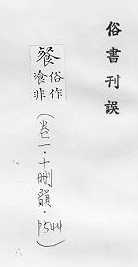 俗書刊誤
餐俗作湌非
(卷一·十刪韻·P544)